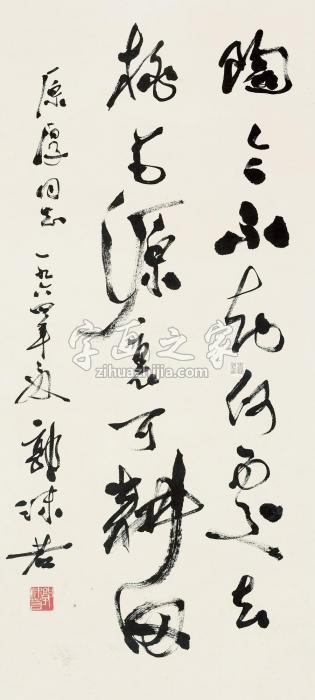 陶令不知何處去
桃花源裏可耕田
原厚同志 一九六四年夏 郭沫若
字画之家
zihuazhijia.com